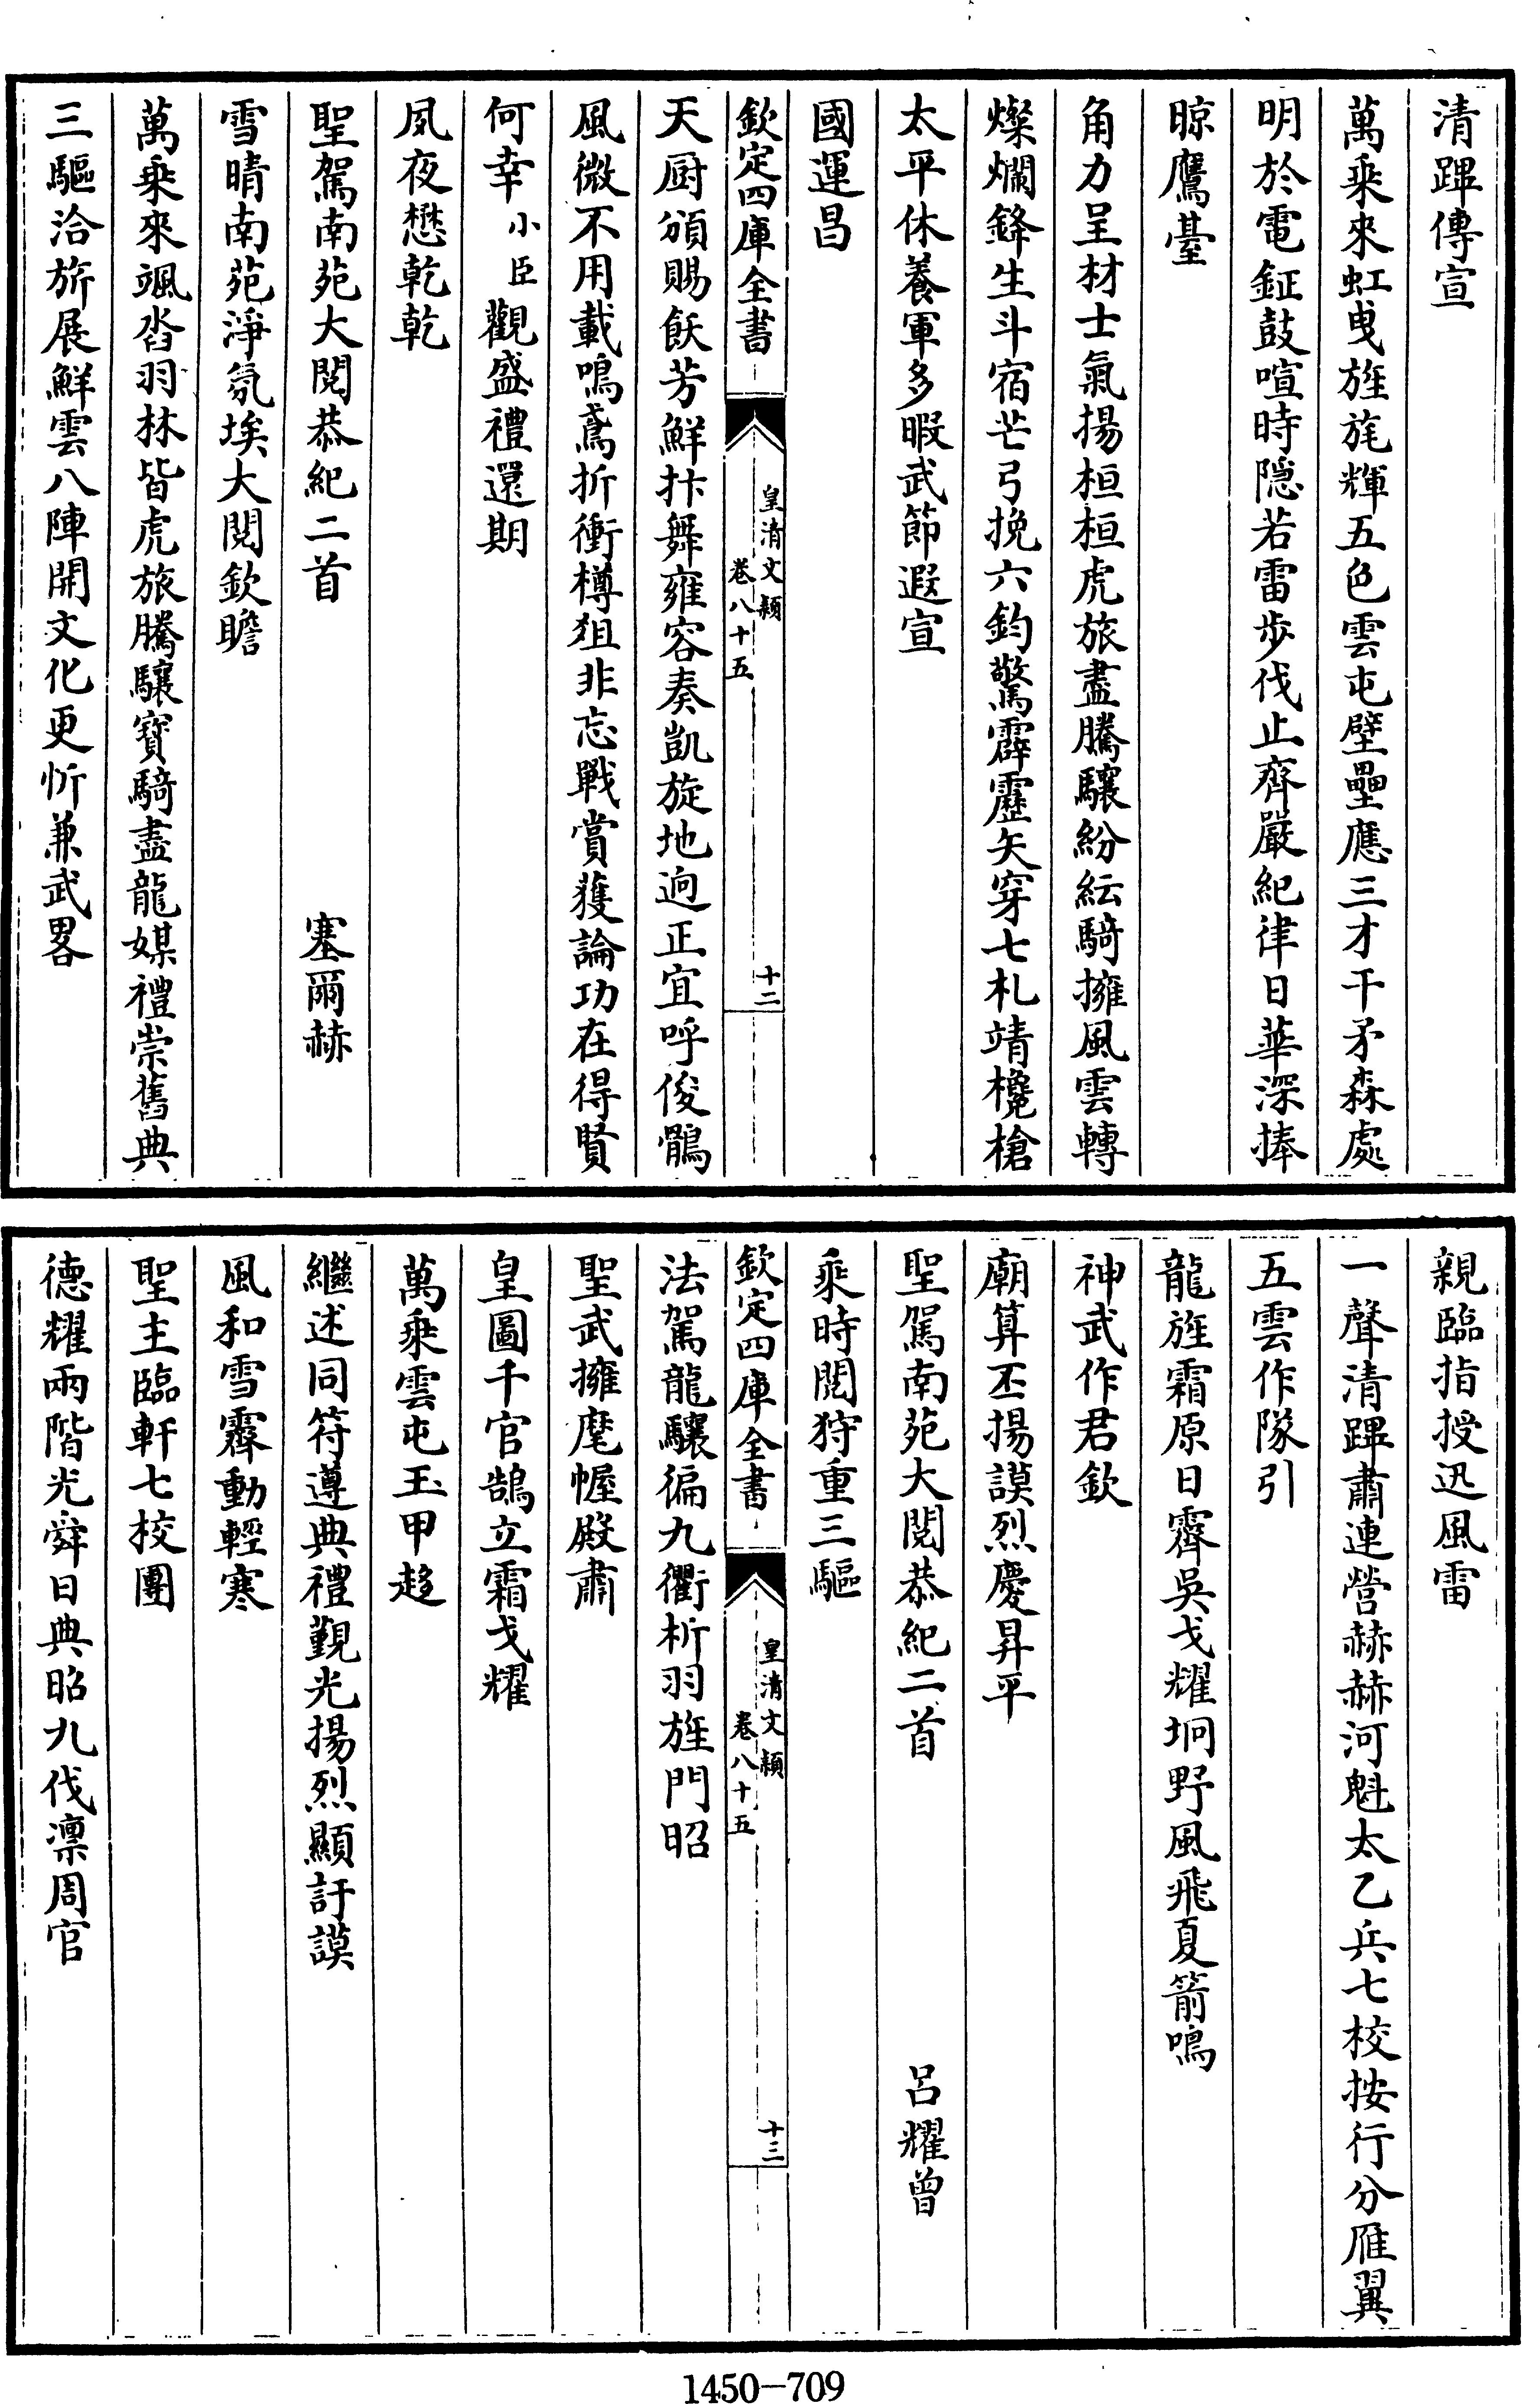 清蹕傳宣
萬乘來虹曳旌旄輝五色雲屯壁壘應三才干矛森處
明於電鉦鼓喧時隱若雷步伐止齊嚴紀律日華深捧
晾鷹臺
角力呈材士氣揚桓桓虎旅盡騰驤紛紜騎擁風雲轉
燦爛鋒生斗宿芒弓挽六鈞驚霹靂矢穿七札靖欃槍
太平休養軍多暇武節遐宣
國運昌
欽定四庫全書
皇清文穎
卷八十五
十二
天厨頒賜飫芳鮮抃舞雍容奏凱旋地逈正宜呼俊鶻
風微不用載鳴鳶折衝樽俎非忘戰賞獲論功在得賢
何幸小臣觀盛禮還期
夙夜懋乾乾
聖駕南苑大閱恭紀二首 塞爾赫
雪晴南苑淨氛埃大閱欽瞻
萬乘來颯沓羽林皆虎旅騰驤寶騎盡龍媒禮崇舊典
三驅洽旂展鮮雲八陣開文化更忻兼武畧
親臨指授迅風雷
一聲清蹕肅連營赫赫河魁太乙兵七校按行分雁翼
五雲作隊引
龍旌霜原日霽吳戈耀坰野風飛夏箭鳴
神武作君欽
廟算丕揚謨烈慶昇平
聖駕南苑大閱恭紀二首 呂耀曾
乘時閱狩重三驅
欽定四庫全書
皇清文穎
卷八十五
十三
法駕龍驤徧九衢析羽旌門昭
聖武擁麾幄殿肅
皇圖千官鵠立霜戈耀
萬乘雲屯玉甲趍
繼述同符遵典禮覲光揚烈顯訏謨
風和雪霽動輕寒
聖主臨軒七校團
德耀兩階光舜日典昭九伐凜周官
1450-709